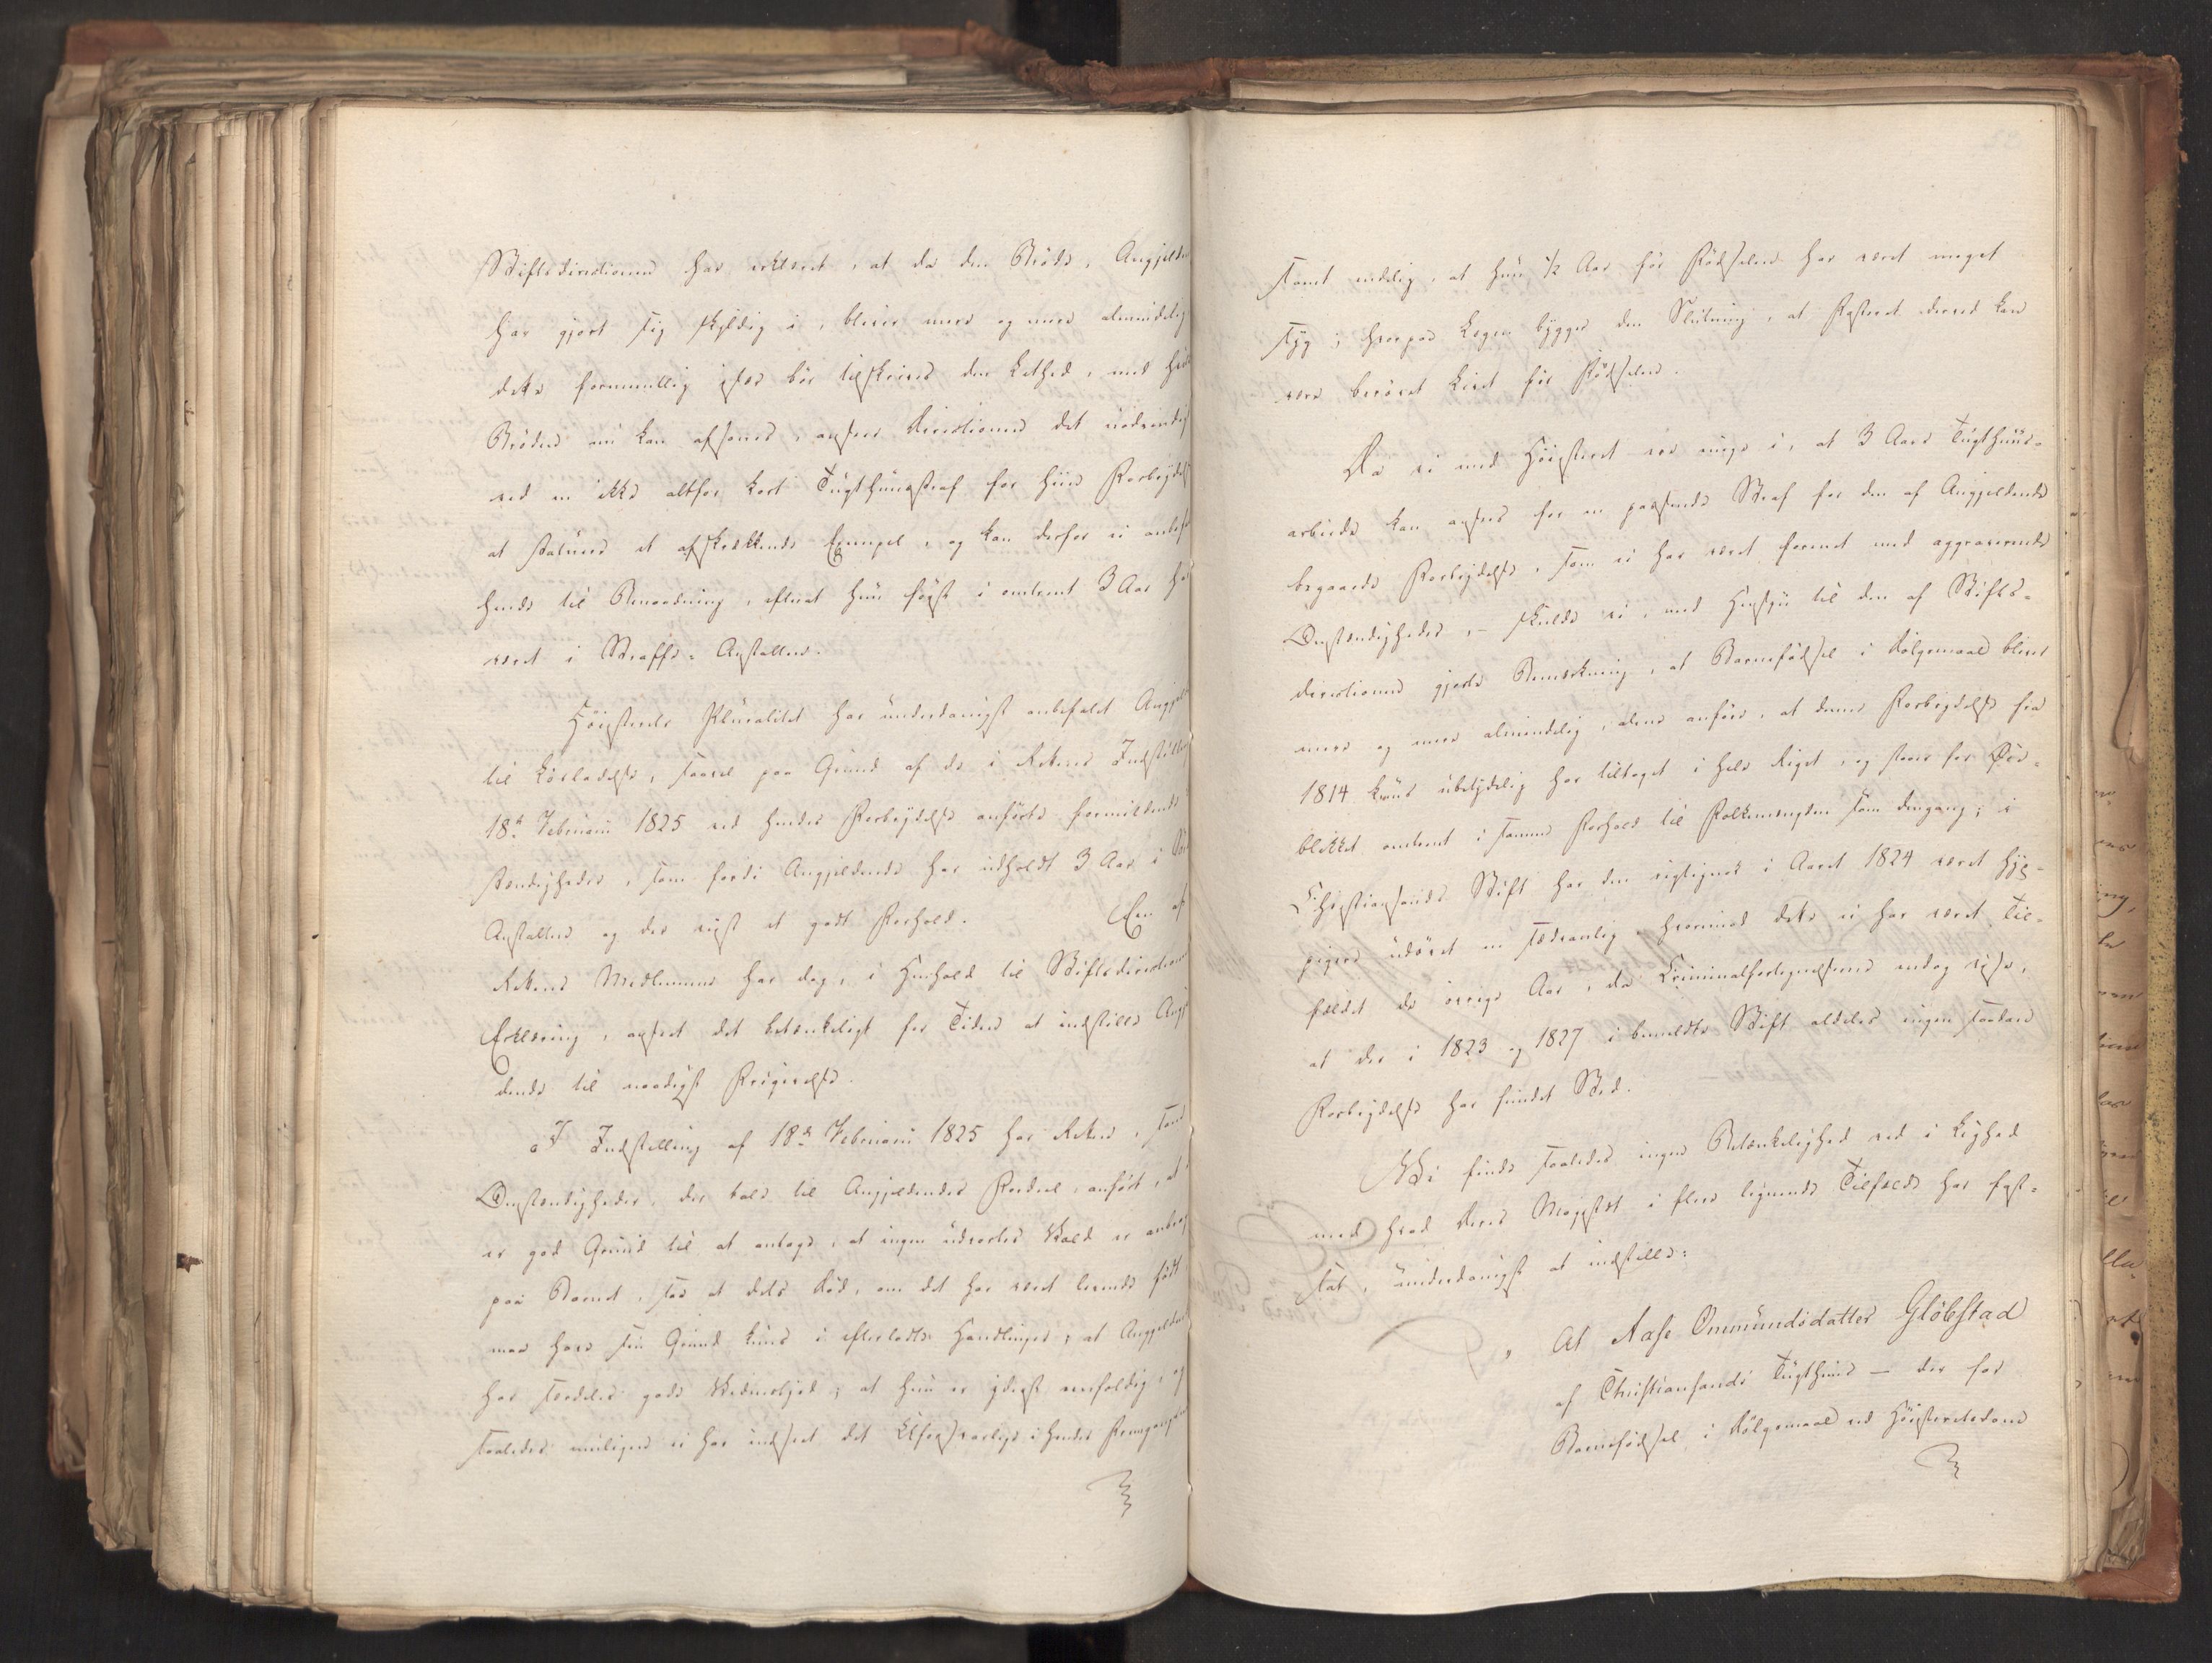 Stiftsdirectionen har erklæret, at da den Bröde, Angjelden
har gjort sig skyldig i, bliver mere og mere almindelig
dette formeentlig især bör tilskrives den Lethed, med hvil
Bröden nu kan afsones, anseer Directionen det nödvendigt
ved en ikke altfor kort Tugthuusstraf for hiin Forbrydels
at statuere et afskrækkende Exempel, og kan derfor ei anbefa
hende til Benaadning, efterat hun först i omtrent 3 Aar ha
været i Straffe-Anstalten.
Höiesterets Pluralitet har underdanigst anbefalet Angjel
til Lösladelse, saavel paa Grund af de i Rettens Indstilling
18de Februarii 1825 ved hendes Forbrydelse anförte formildende
stændigheder, som fordi Angjeldende har udholdt 3 Aar i
Anstalten og der viist et godt Forhold. En af
Rettens Medlemmer har dog, i Henhold til Stiftsdirectionens
Erklæring, anseet det betænkeligt for Tiden at indstille Angjel
dende til naadigst Frigivelse.
I Indstilling af 18de Februarii 1825 har Retten, som
Omstændigheder, der tale til Angjeldendes Fordeel, anfört, at
er god Grund til at antage, at ingen udvortes Vold er anbragt
paa Barnet, saa at dets Död, om det har været levende födt
maa have sin Grund kuns i efterladte Handlinger; at Angjeldende
har særdeles gode Vidnesbyrd; at hun er yderst eenfoldig, og
saaledes muligens ei har indseet det Uforsvarlige i hendes Fremgangs
samt endelig, at hun 1/2 Aar för Födselen har været meget
syg; hvorpaa Lægen bygger den Slutning, at Fosteret derved kan
være berövet Livet för Födselen.
Da vi med Höiesteret ere enige i, at 3 Aars Tugthuus-
arbeide kan ansees for en passende Straf for den af Angjeldende
begaaede Forbrydelse, som ei har været forenet med aggraverende
Omstændigheder, – skulde vi, med Hensyn til den af Stifts-
directionen gjorte Bemærkning, at Barnefödsel i Dölgsmaal bliver
mere og mere almindelig, alene anföre, at denne Forbrydelse fra
1814 kuns ubetydelig har tiltaget i hele Riget, og staaer for Öie-
blikket omtrent i samme Forhold til Folkemængden som dengang; i
Christiansands Stift har den rigtignok i Aaret 1824 været hyp-
pigere udövet en sædvanlig, hvorimod dette ei har været Til-
fældet de övrige Aar, da Criminalfortegnelserne endog vise,
at der i 1823 og 1827 i bemeldte Stift aldeles ingen saadan
Forbrydelse har fundet Sted.
Vi finde saaledes ingen Betænkelighed ved i Liighed
med hvad Deres Majestæt i flere lignende Tilfælde har fast-
sat, underdanigst at indstille:
„ At Aase Ommundsdatter Glöbstad
af Christiansands Tugthuus – der for
Barnefödsel i Dölgsmaal ved Höiesteretsdom